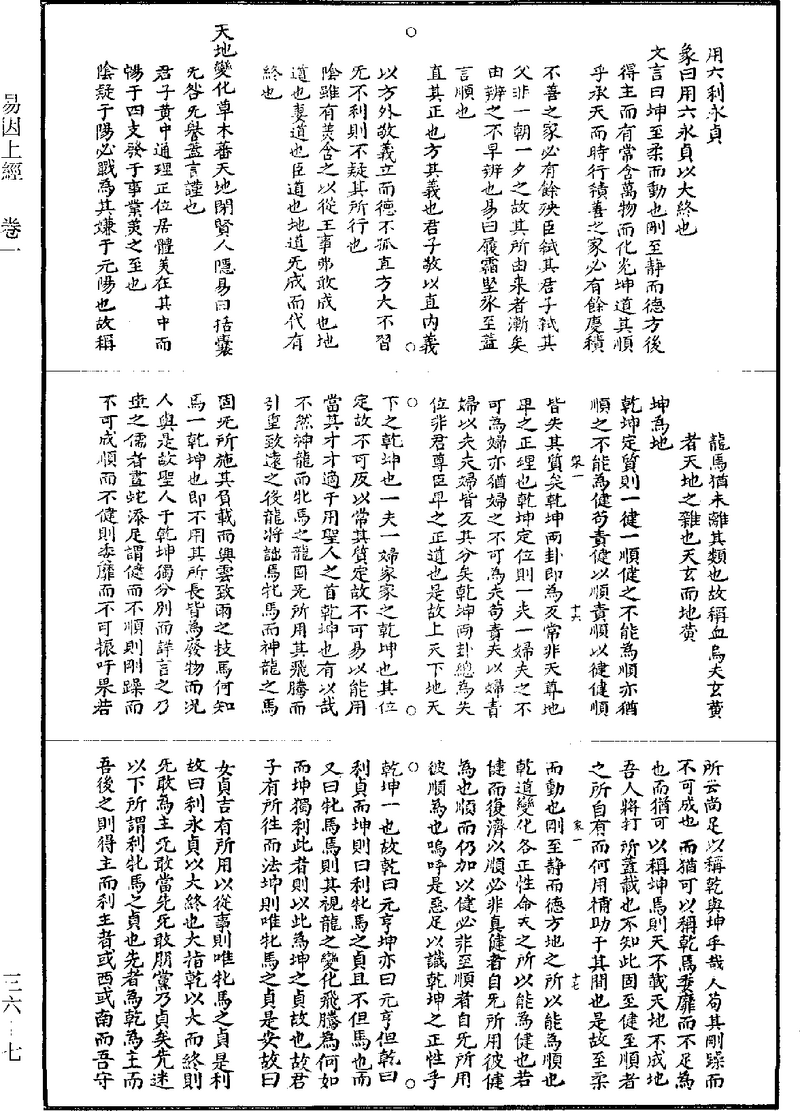 易因上經　卷一
三六・七
用六利永貞
象曰用六永貞以大終也
文言曰坤至柔而動也剛至静而德方後
得主而有常含萬物而化光坤道其順
乎承天而時行積善之家必有餘慶積
不善之家必有餘殃臣弑其君子弑其
父非一朝一夕之故其所由来者漸矣
由辨之不早辨也易曰履霜堅氷至蓋
言順也
直其正也方其義也君子敬以直内義
以方外敬義立而德不孤直方大不習
无不利則不疑其所行也
陰雖有美含之以從王事弗敢成也地
道也妻道也臣道也地道无成而代有
終也
天地變化草木蕃天地閉賢人隱易曰括囊
无咎无譽蓋言謹也
君子黄中通理正位居體美在其中而
暢于四支發于事業美之至也
陰疑于陽必戰為其嫌于无陽也故稱
龍馬猶未離其類也故稱血馬夫玄黄
者天地之雜也天玄而地黄
坤為地
乾坤定質則一健一順健之不能為順亦猶
順之不能為健苟責健以順責順以健健順
皆失其質矣乾坤兩卦即為反常非天尊地
卑之正理也乾坤定位則一夫一婦夫之不
可為婦亦猶婦之不可為夫苟責夫以婦責
婦以夫夫婦皆反其分矣乾坤兩卦總為失
位非君尊臣卑之正道也是故上天下地天
下之乾坤也一夫一婦家家之乾坤也其位
定故不可反以常其質定故不可易以能用
當其才才適于用聖人之首乾坤也有以哉
不然神龍而牝馬之龍固无所用其飛騰而
引重致遠之後龍將詘馬牝馬而神龍之馬
固无所施其負載而興雲致雨之技馬何知
馬一乾坤也即不用其所長皆為癈物而况
人與是故聖人于乾坤獨分别而詳言之乃
世之儒者畫蛇添足謂健而不順則剛躁而
不可成順而不健則委靡而不可振吁果若
所云尚足以稱乾與坤乎哉人苟其剛躁而
不可成也而猶可以稱乾馬委靡而不足為
也而猶可以稱坤馬則天不載天地不成地
吾人將打所蓋載也不知此固至健至順者
之所自有而何用補助于其間也是故至柔
而動也剛至静而德方地之所以能為順也
乾道變化各正性命天之所以能為健也若
健而復濟以順必非真健者自无所用彼健
為也順而仍加以健必非至順者自无所用
彼順為也嗚呼是惡足以識乾坤之正性乎
乾坤一也故乾曰元亨坤亦曰元亨但乾曰
利貞而坤則曰利牝馬之貞且不但馬也而
又曰牝馬馬則其視龍之變化飛騰為何如
而坤獨利此者則以此為坤之貞故也故君
子有所往而法坤則唯牝馬之貞是安故曰
女貞吉有所用以從事則唯牝馬之貞是利
故曰利永貞以大終也大指乾以大而終則
无敢為主无敢當先无敢朋黨乃貞矣先迷
以下所謂利牝馬之貞也先者為乾為主而
吾後之則得主而利主者或西或南而吾守